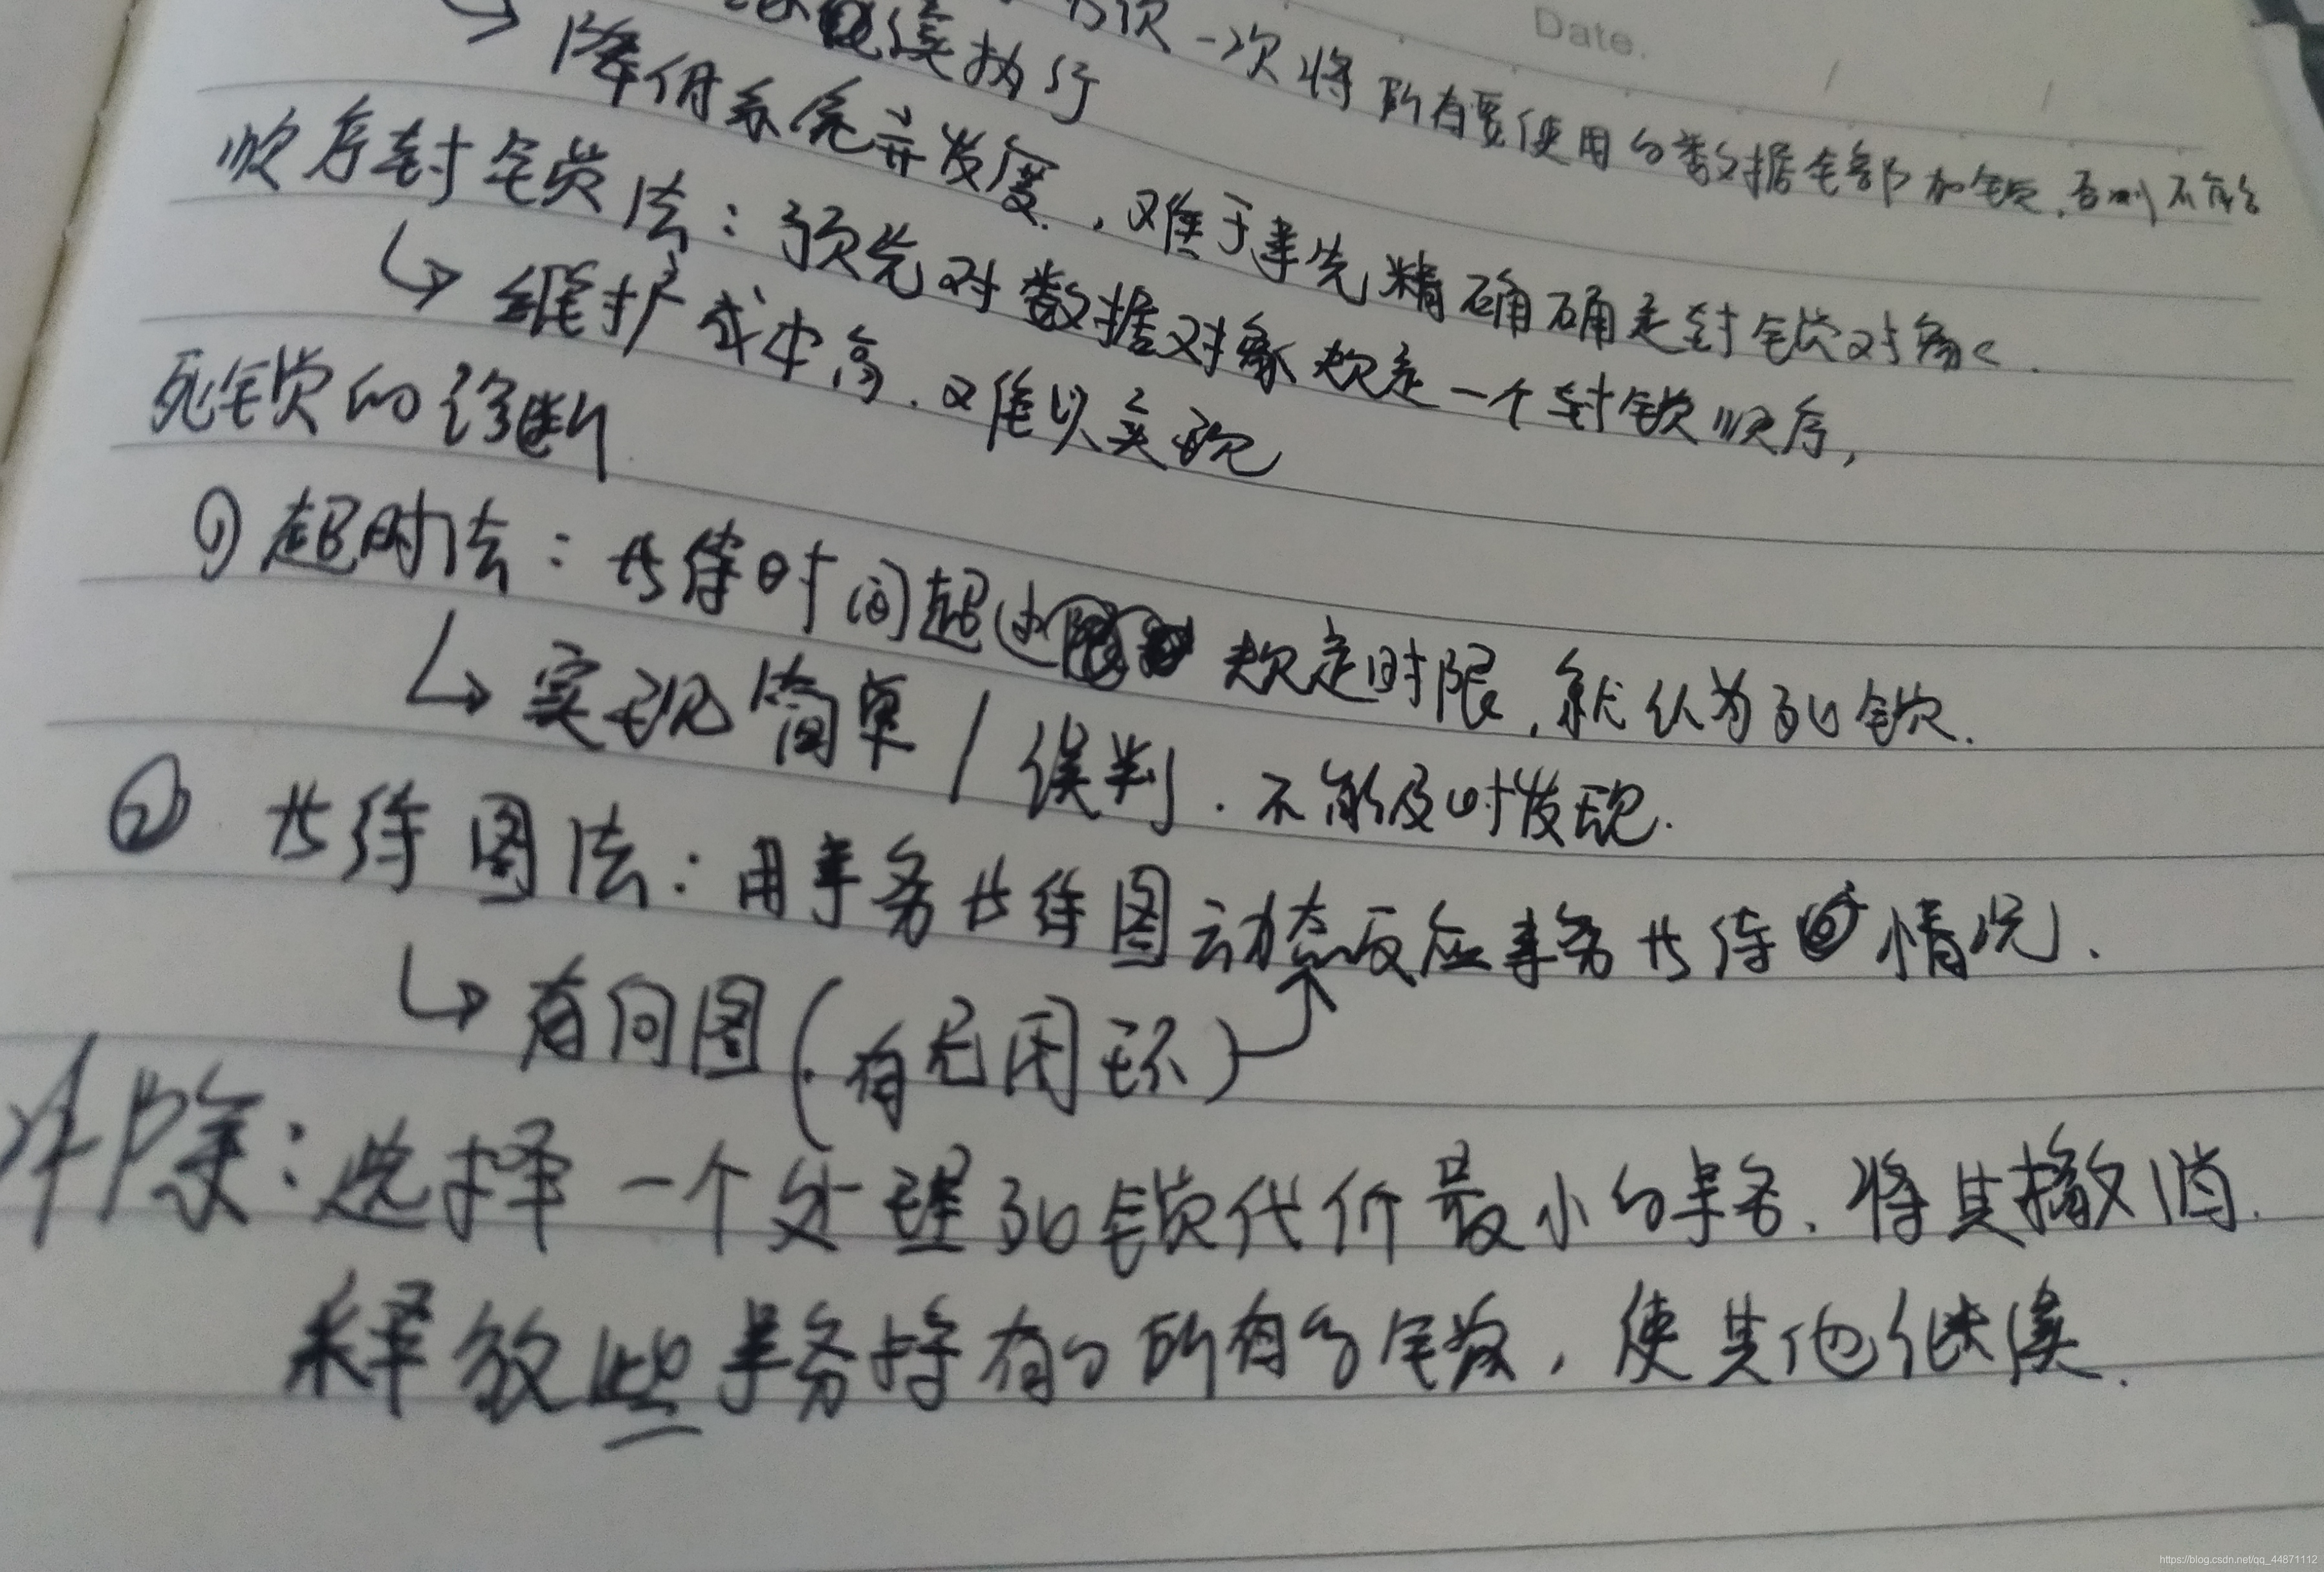 Date.
一次将所有要使用的数据全部加锁,否则不能
继续执行
↳ 降低系统并发度,难于事先精确确定封锁对象.
顺序封锁法:预先对数据对象规定一个封锁顺序,
↳ 维护成本高.难以实现
死锁的诊断
① 超时法:等待时间超过规定时限,就认为死锁.
↳ 实现简单/误判.不能及时发现.
② 等待图法:用事务等待图动态反应事务等待情况.
↳ 有向图(有无回环)
解除:选择一个处理死锁代价最小的事务.将其撤消.
释放此事务持有的所有的锁,使其他继续.
https://blog.csdn.net/qq_44871112